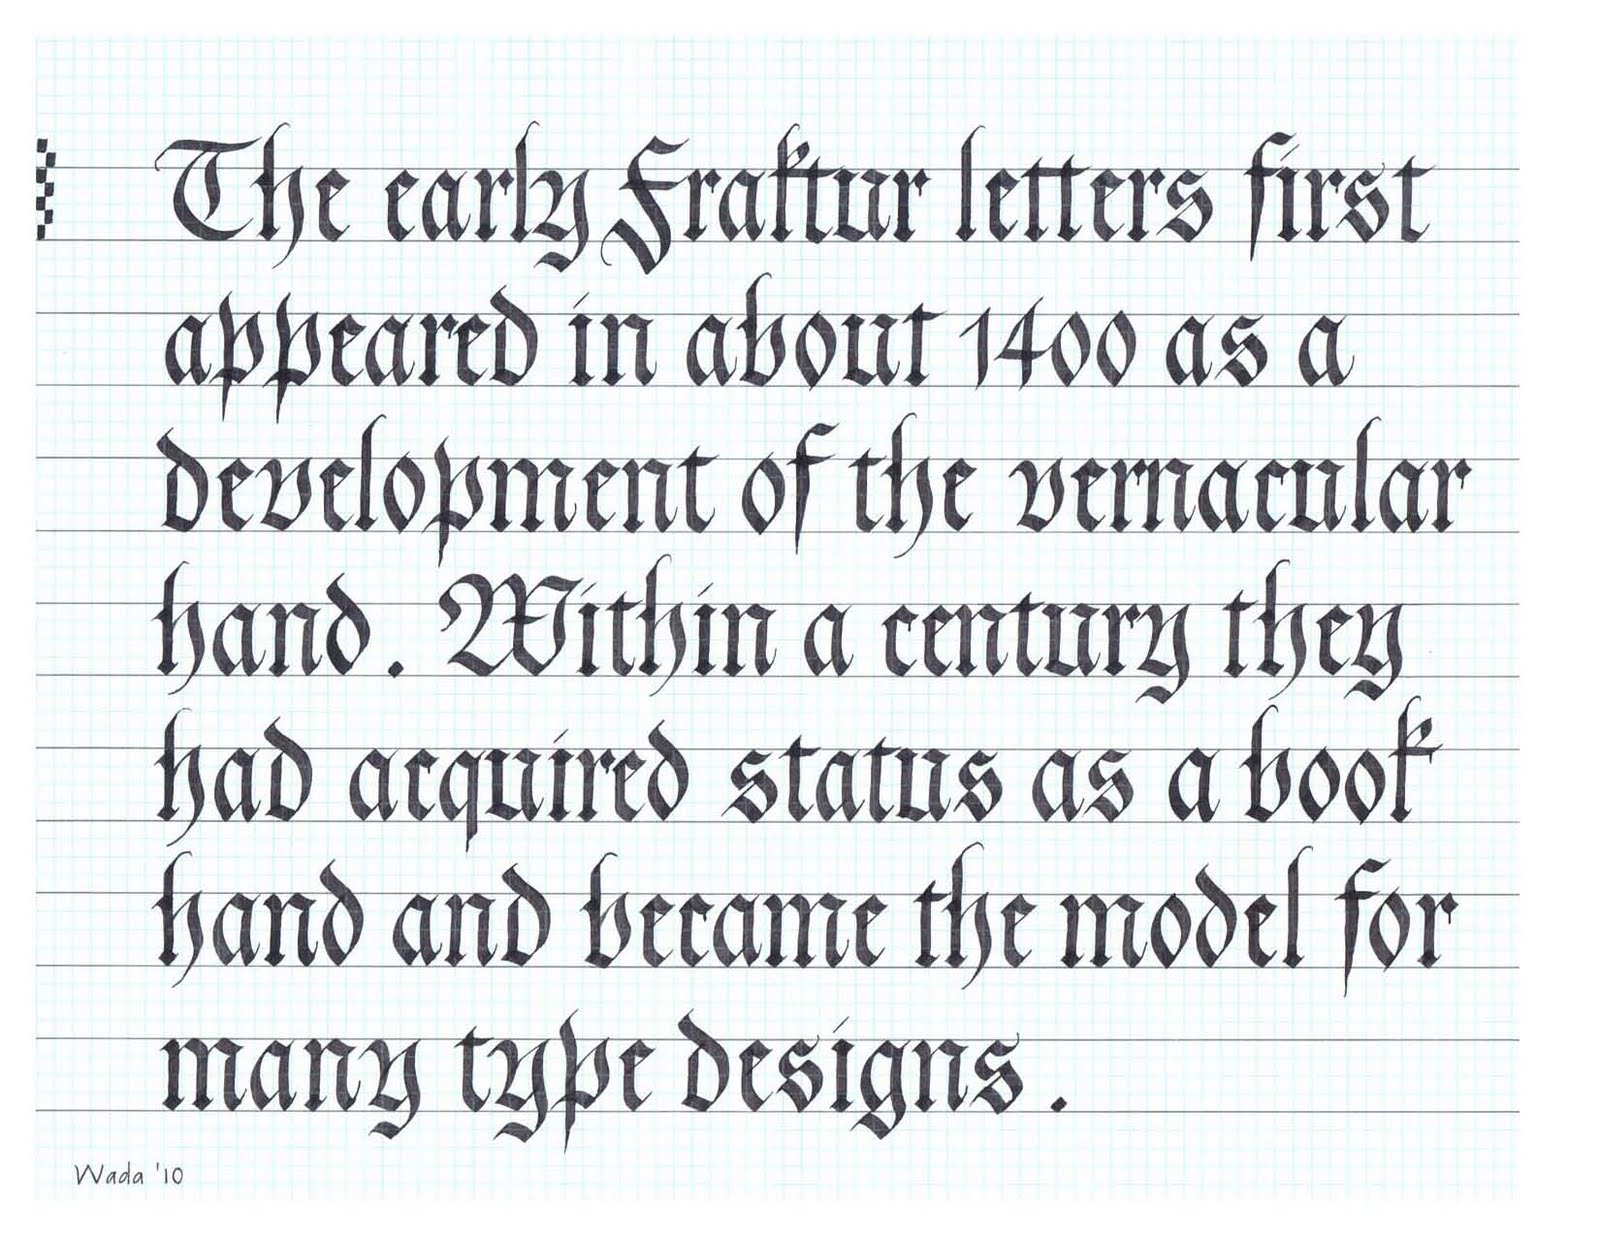 The early Fraktur letters first
appeared in about 1400 as a
development of the vernacular
hand. Within a century they
had acquired status as a book
hand and became the model for
many type designs.
Wada '10